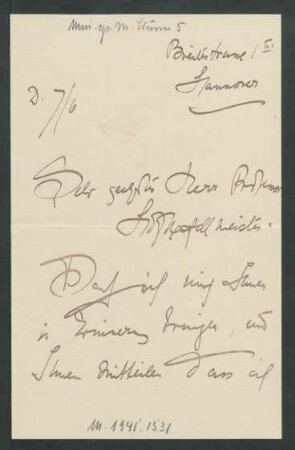 Mus. ep. M. Sturm 5
Breitestrasse 1 III.
Hannover
D. 7/6
Sehr geehrter Herr Professor
Hofkapellmeister.
Darf ich mich Ihnen
in Erinnerung bringen, und
Ihnen mitteilen dass ich
M. 1941.1531